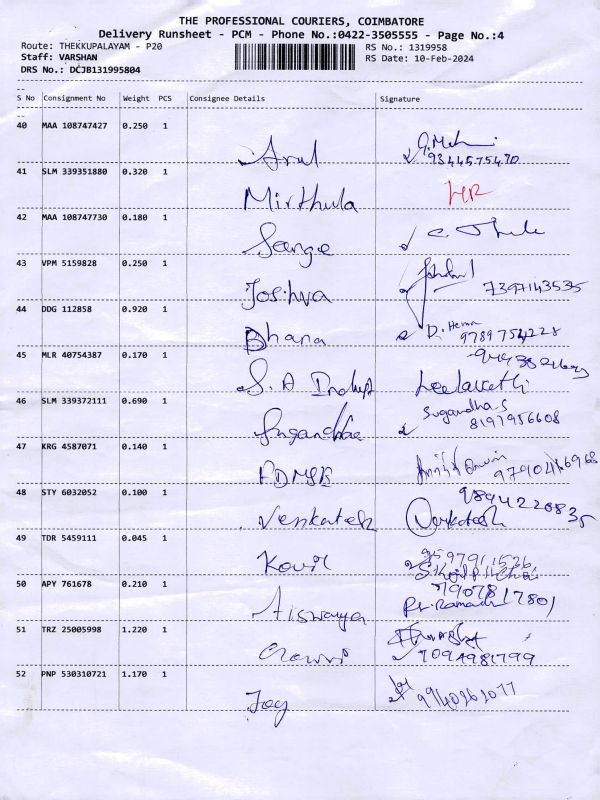 THE PROFESSIONAL COURIERS, COIMBATORE
Delivery Runsheet - PCM - Phone No.:0422-3505555 - Page No.:4
Route: THEKKUPALAYAM - P20 RS No.: 1319958
Staff: VARSHAN RS Date: 10-Feb-2024
DRS No.: DCJB131995804
S No Consignment No Weight PCS Consignee Details Signature
40 MAA 108747427 0.250 1
Arul 9344575470
41 SLM 339351880 0.320 1
Mirthula HR
42 MAA 108747730 0.180 1
Sange
43 VPM 5159828 0.250 1
Joshva 7397143535
44 DDG 112858 0.920 1
Dhana D. Hema
9789754228
45 MLR 40754387 0.170 1
S. A Leelavathi
46 SLM 339372111 0.690 1
Sugandhae Sugandha.S
8197956608
47 KRG 4587071 0.140 1
48 STY 6032052 0.100 1
Venkatesh Venkatesh
49 TDR 5459111 0.045 1
Kovil
50 APY 761678 0.210 1
Aiswarya
51 TRZ 25005998 1.220 1
7094981799
52 PNP 530310721 1.170 1
Joy